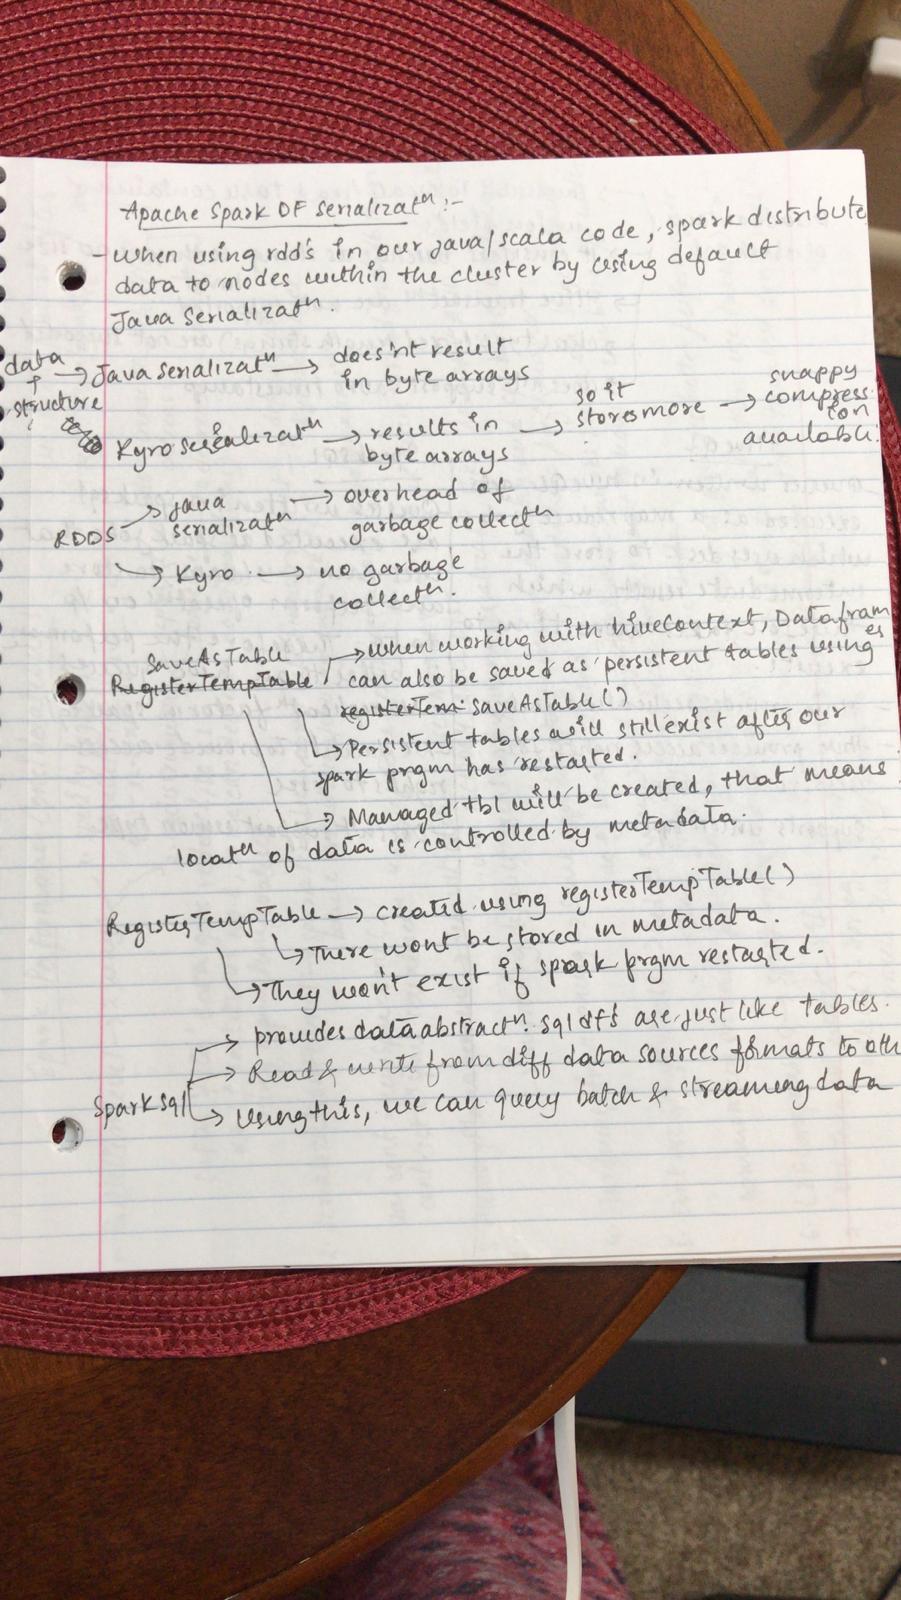 Apache Spark DF Serializatn :-
- When using rdd's in our java/scala code, spark distribute
data to nodes within the cluster by using default
Java Serializatn.
data + structure → Java Serializatn → does'nt result in byte arrays
Kyro serealizatn → results in byte arrays → so it stores more → snappy compression available.
RDDS → java serializatn → overhead of garbage collectn
→ Kyro → no garbage collectn.
SaveAsTable
RegisterTempTable → When working with hiveContext, Dataframes
can also be saved as persistent tables using
registerTem. saveAsTable()
→ Persistent tables will still exist after our
spark prgm has restarted.
→ Managed tbl will be created, that means
locatn of data is controlled by metadata.
RegisterTempTable → created using registerTempTable()
→ There wont be stored in metadata.
→ They won't exist if spark prgm restarted.
→ provides data abstractn. sql df's are just like tables.
→ Read & write from diff data sources formats to oth
Spark sql → Using this, we can query batch & streaming data